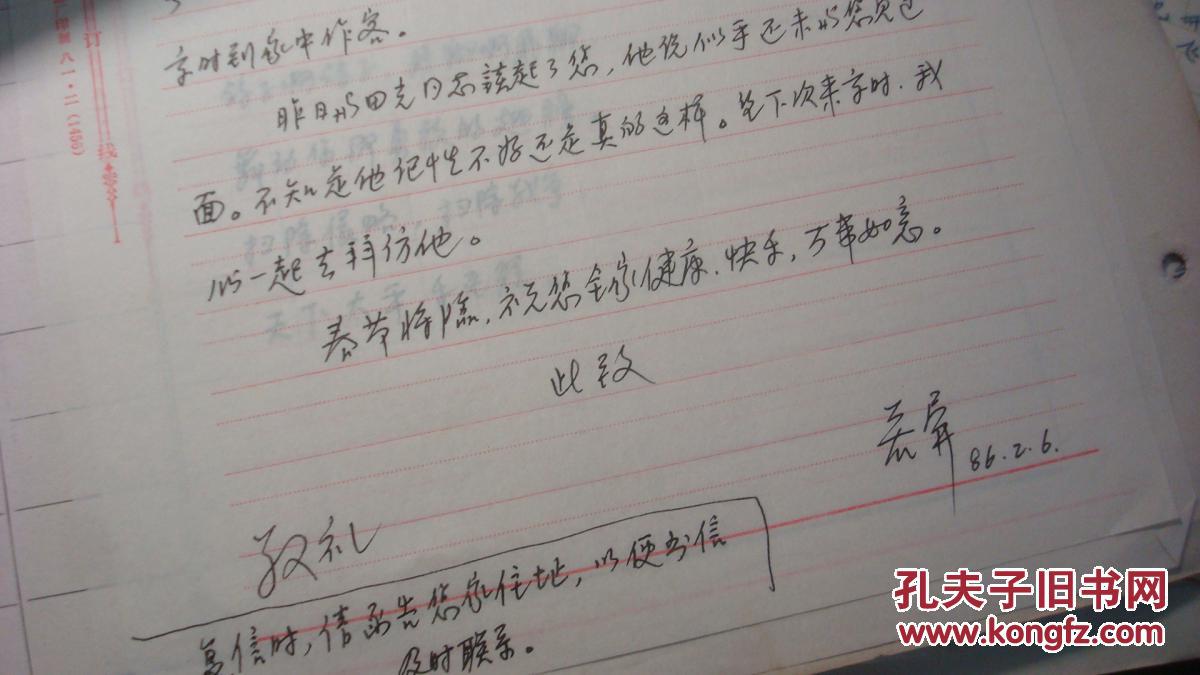 京时到家中作客。
昨日与田克同志谈起了您，他说似乎还未与您见过
面。不知是他记性不好还是真的这样。等下次来京时，我
们一起去拜仿他。
春节将临，祝您全家健康、快乐，万事如意。
此致
86.2.6.
敬礼
复信时，请函告您家住址，以便书信
及时联系。
订
线
八一·二(1456)
孔夫子旧书网
www.kongfz.com